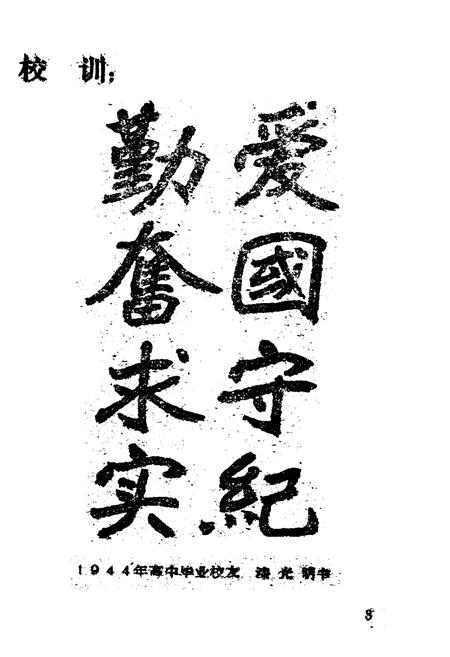 校训：
爱國守紀
勤奮求实
1944年高中毕业校友 光明书
3